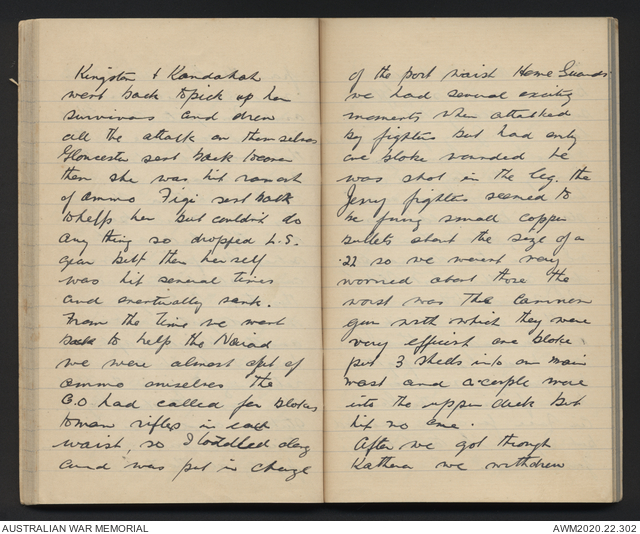 Kingston & Kandahah
went back to pick up her
survivors and drew
all the attack on themselves
Gloucester sent back to cover
them she was hit ran out
of ammo Figi sent back
to help her but couldn't do
any thing so dropped L.S.
gear but then her self
was hit several times
and eventually sank.
From the time we went
back to help the Naiad
we were almost out of
ammo ourselves the
G.O had called for blokes
to man rifles in each
waist, so I toddled along
and was put in charge
of the port waist Home Guards
we had several exciting
moments when attacked
by fighters but had only
one bloke wounded he
was shot in the leg. the
Jerry fighters seemed to
be firing small copper
bullets about the size of a
.22 so we werent very
worried about those the
worst was the cannon
gun with which they were
very efficient one bloke
put 3 shells into our main
mast and a couple more
into the upper deck but
hit no one.
After we got through
Kathera we withdrew
AUSTRALIAN WAR MEMORIAL
AWM2020.22.302